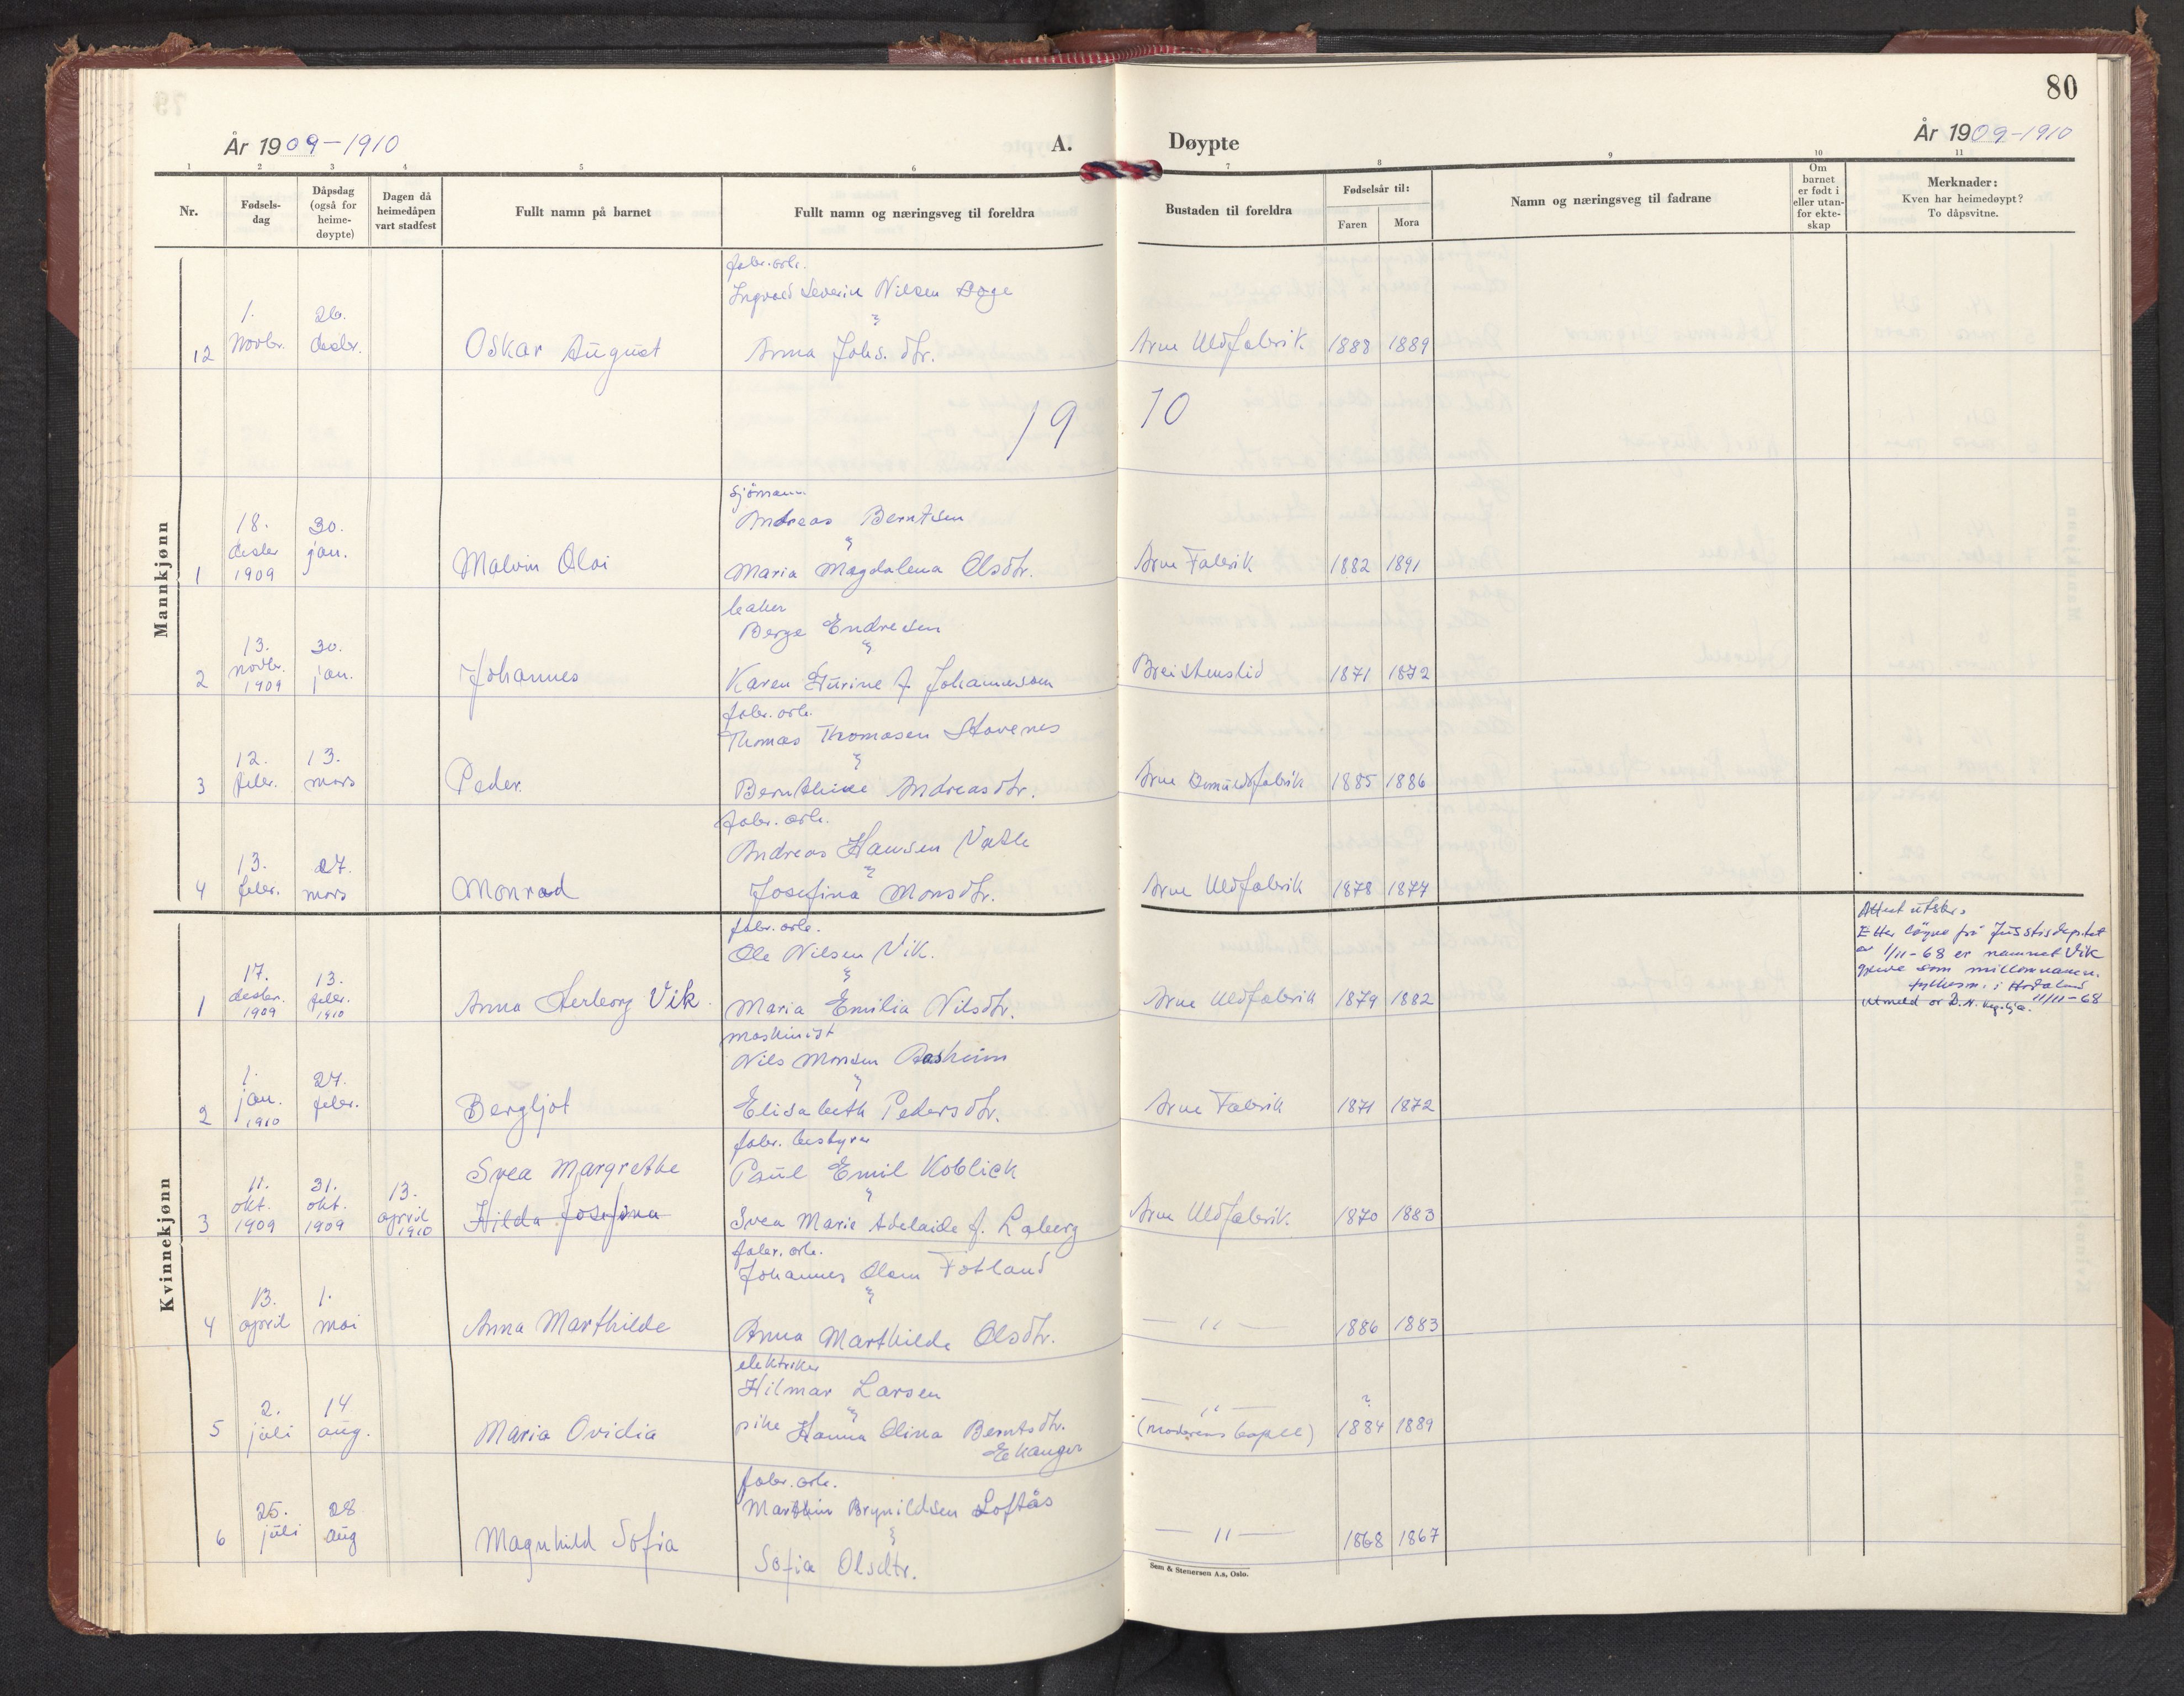 År 1909-1910
A.
1 2 3 4 5 6
Nr.
Fødsels-
dag
Dåpsdag
(også for
heime-
døypte)
Dagen då
heimedåpen
vart stadfest
Fullt namn på barnet
Fullt namn og næringsveg til foreldra
Døypte
80
År 1909-1910
7 8 9 10 11
Bustaden til foreldra
Fødselsår til:
Faren Mora
Namn og næringsveg til fadrane
Om
barnet
er født i
eller utan-
for ekte-
skap
Merknader:
Kven har heimedøypt?
To dåpsvitne.
Mannkjønn
fabr.arb.
Ingvald Severin Nilsen
1. 26.
12 novbr. desbr. Oskar August Anna Johs.dtr. Arne Uldfabrik 1888 1889
19 10
sjömann
18. 30. Andreas Berntsen
desbr jan.
1 1909 Malvin Olai Maria Magdalena Olsdtr. Arne Fabrik 1882 1891
baker
Berge Endresen
13. 30.
2 novbr. jan. Johannes Karen Gurine f. Johannesson Breistenslid 1871 1872
1909
fabr.arb.
Thomas Thomasen Stavenes
12. 13.
3 febr. mars Peder Bernthine Andreasdtr. Arne 1885 1886
fabr.arb.
Andreas Hansen Vatle
13. 27.
4 febr. mars Monrad Josefina Monsdtr. Arne Uldfabrik 1878 1877
Kvinnekjønn
fabr.arb.
Ole Nilsen Vik.
17. 13.
desbr. febr.
1 1909 1910 Anna Herborg Vik. Maria Emilia Nilsdtr. Arne Uldfabrik 1879 1882
Attest utskr.
Etter löyve frå Justisdepitet
av 1/11-68 er namnet Vik
som millomnamn.
fylkesm. i Hordaland
Utmeld or D.N. kyrkja. 11/11-68
maskinist
Nils Monsen Aasheim
1. 27.
jan. febr.
2 1910 Bergljot Elisabeth Pedersdtr. Arne Fabrik 1871 1872
fabr. bestyrer
Svea Margrethe Paul Emil Koblick
11. 31. 13.
okt. okt. april
3 1909 1909 1910 Hilda Josefina Svea Marie Adelaide f. Laberg Arne Uldfabrik. 1870 1883
fabr.arb.
Johannes Olsen Fotland
13. 1.
4 april mai Anna Marthilde Anna Marthilde Olsdtr. — " — 1886 1883
elektriker
Hilmar Larsen
2. 14 — " — ?
5 juli aug. Maria Ovidia pike Hanna Olina Berntsdtr. (moderens bopel) 1884 1889
Ekanger
fabr.arb.
Marthin Brynildsen Loftås
25. 28.
6 juli aug Magnhild Sofia — " — 1868 1867
Sofia Olsdtr.
Sem & Stenersen A.s, Oslo.